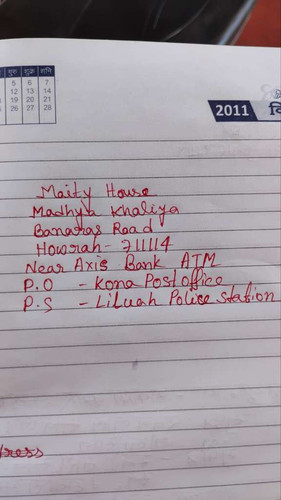 गुरु शुक्र शनि
5 6 7
12 13 14
19 20 21
26 27 28
2011
Maity House
Madhya Khaliya
Banaras Road
Howrah - 711114
Near Axis Bank ATM
P.O - Kona Post office
P.S - Liluah Police Station